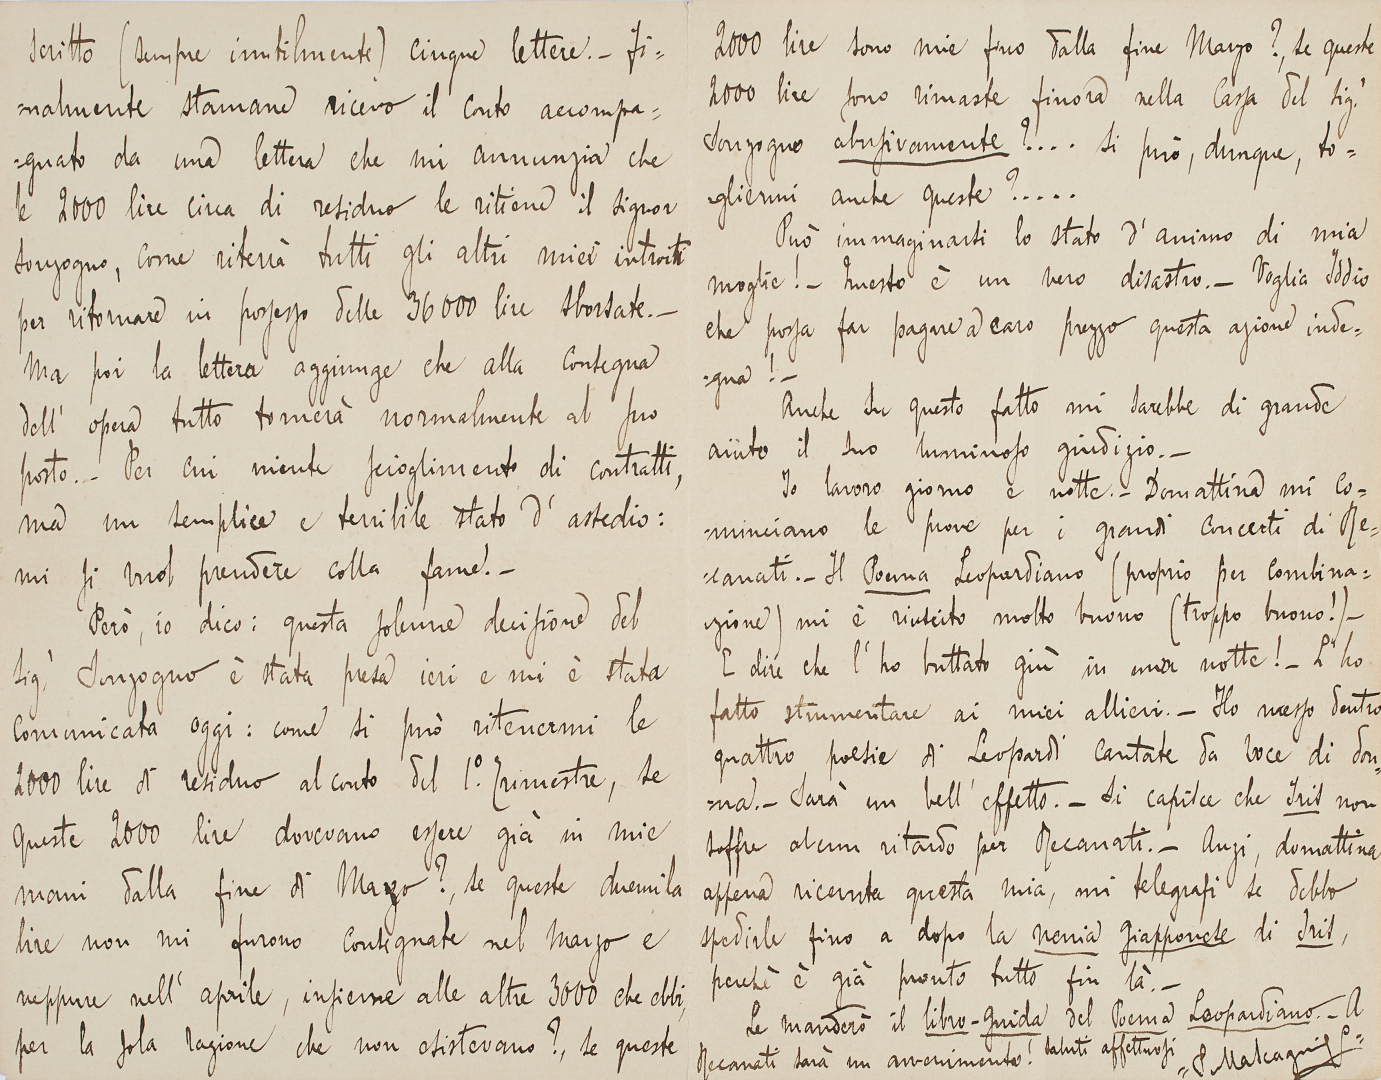 scritto (sempre inutilmente) cinque lettere. – Fi=
=nalmente stamane ricevo il conto accompa=
=gnato da una lettera che mi annunzia che
le 2000 lire circa di residuo le ritiene il signor
Sonzogno, come riterrà tutti gli altri miei introiti
per ritornare in possesso delle 36000 lire sborsate. –
Ma poi la lettera aggiunge che alla consegna
dell' opera tutto tornerà normalmente al suo
posto. – Per cui niente scioglimento di contratti,
ma un semplice e terribile stato d' assedio:
mi si vuol prendere colla fame. –
Però, io dico: questa solenne decisione del
Sig.r Sonzogno è stata presa ieri e mi è stata
comunicata oggi: come si può ritenermi le
2000 lire di residuo al conto del 1.o Trimestre, se
queste 2000 lire dovevano essere già in mie
mani dalla fine di Marzo?, se queste duemila
lire non mi furono consegnate nel Marzo e
neppure nell' aprile, insieme alle altre 3000 che ebbi,
per la sola ragione che non esistevano?, se queste
2000 lire sono mie fino dalla fine Marzo?, se queste
2000 lire sono rimaste finora nella Cassa del Sig.r
Sonzogno abusivamente ?.... Si può, dunque, to=
=gliermi anche queste ?.....
Può immaginarsi lo stato d' animo di mia
moglie! – Questo è un vero disastro. – Voglia Iddio
che possa far pagare a caro prezzo questa azione inde=
=gna! –
Anche su questo fatto mi sarebbe di grande
aiuto il suo luminoso giudizio. –
Io lavoro giorno e notte. – Domattina mi co=
=minciano le prove per i grandi Concerti di Re=
=canati. – Il Poema Leopardiano (proprio per combina=
=zione) mi è riuscito molto buono (troppo buono!) –
E dire che l' ho buttato giù in una notte! – L' ho
fatto strumentare ai miei allievi. – Ho messo dentro
quattro poesie di Leopardi cantate da voce di don=
=na. – Sarà un bell' effetto. – Si capisce che Iris non
soffre alcun ritardo per Recanati. – Anzi, domattina
appena ricevuta questa mia, mi telegrafi se debbo
spedirle fino a dopo la nenia giapponese di Iris,
perchè è già pronto tutto fin là. –
Le manderò il libro-guida del Poema Leopardiano. – A
Recanati sarà un avvenimento! Saluti affettuosi
"P. Mascagni"